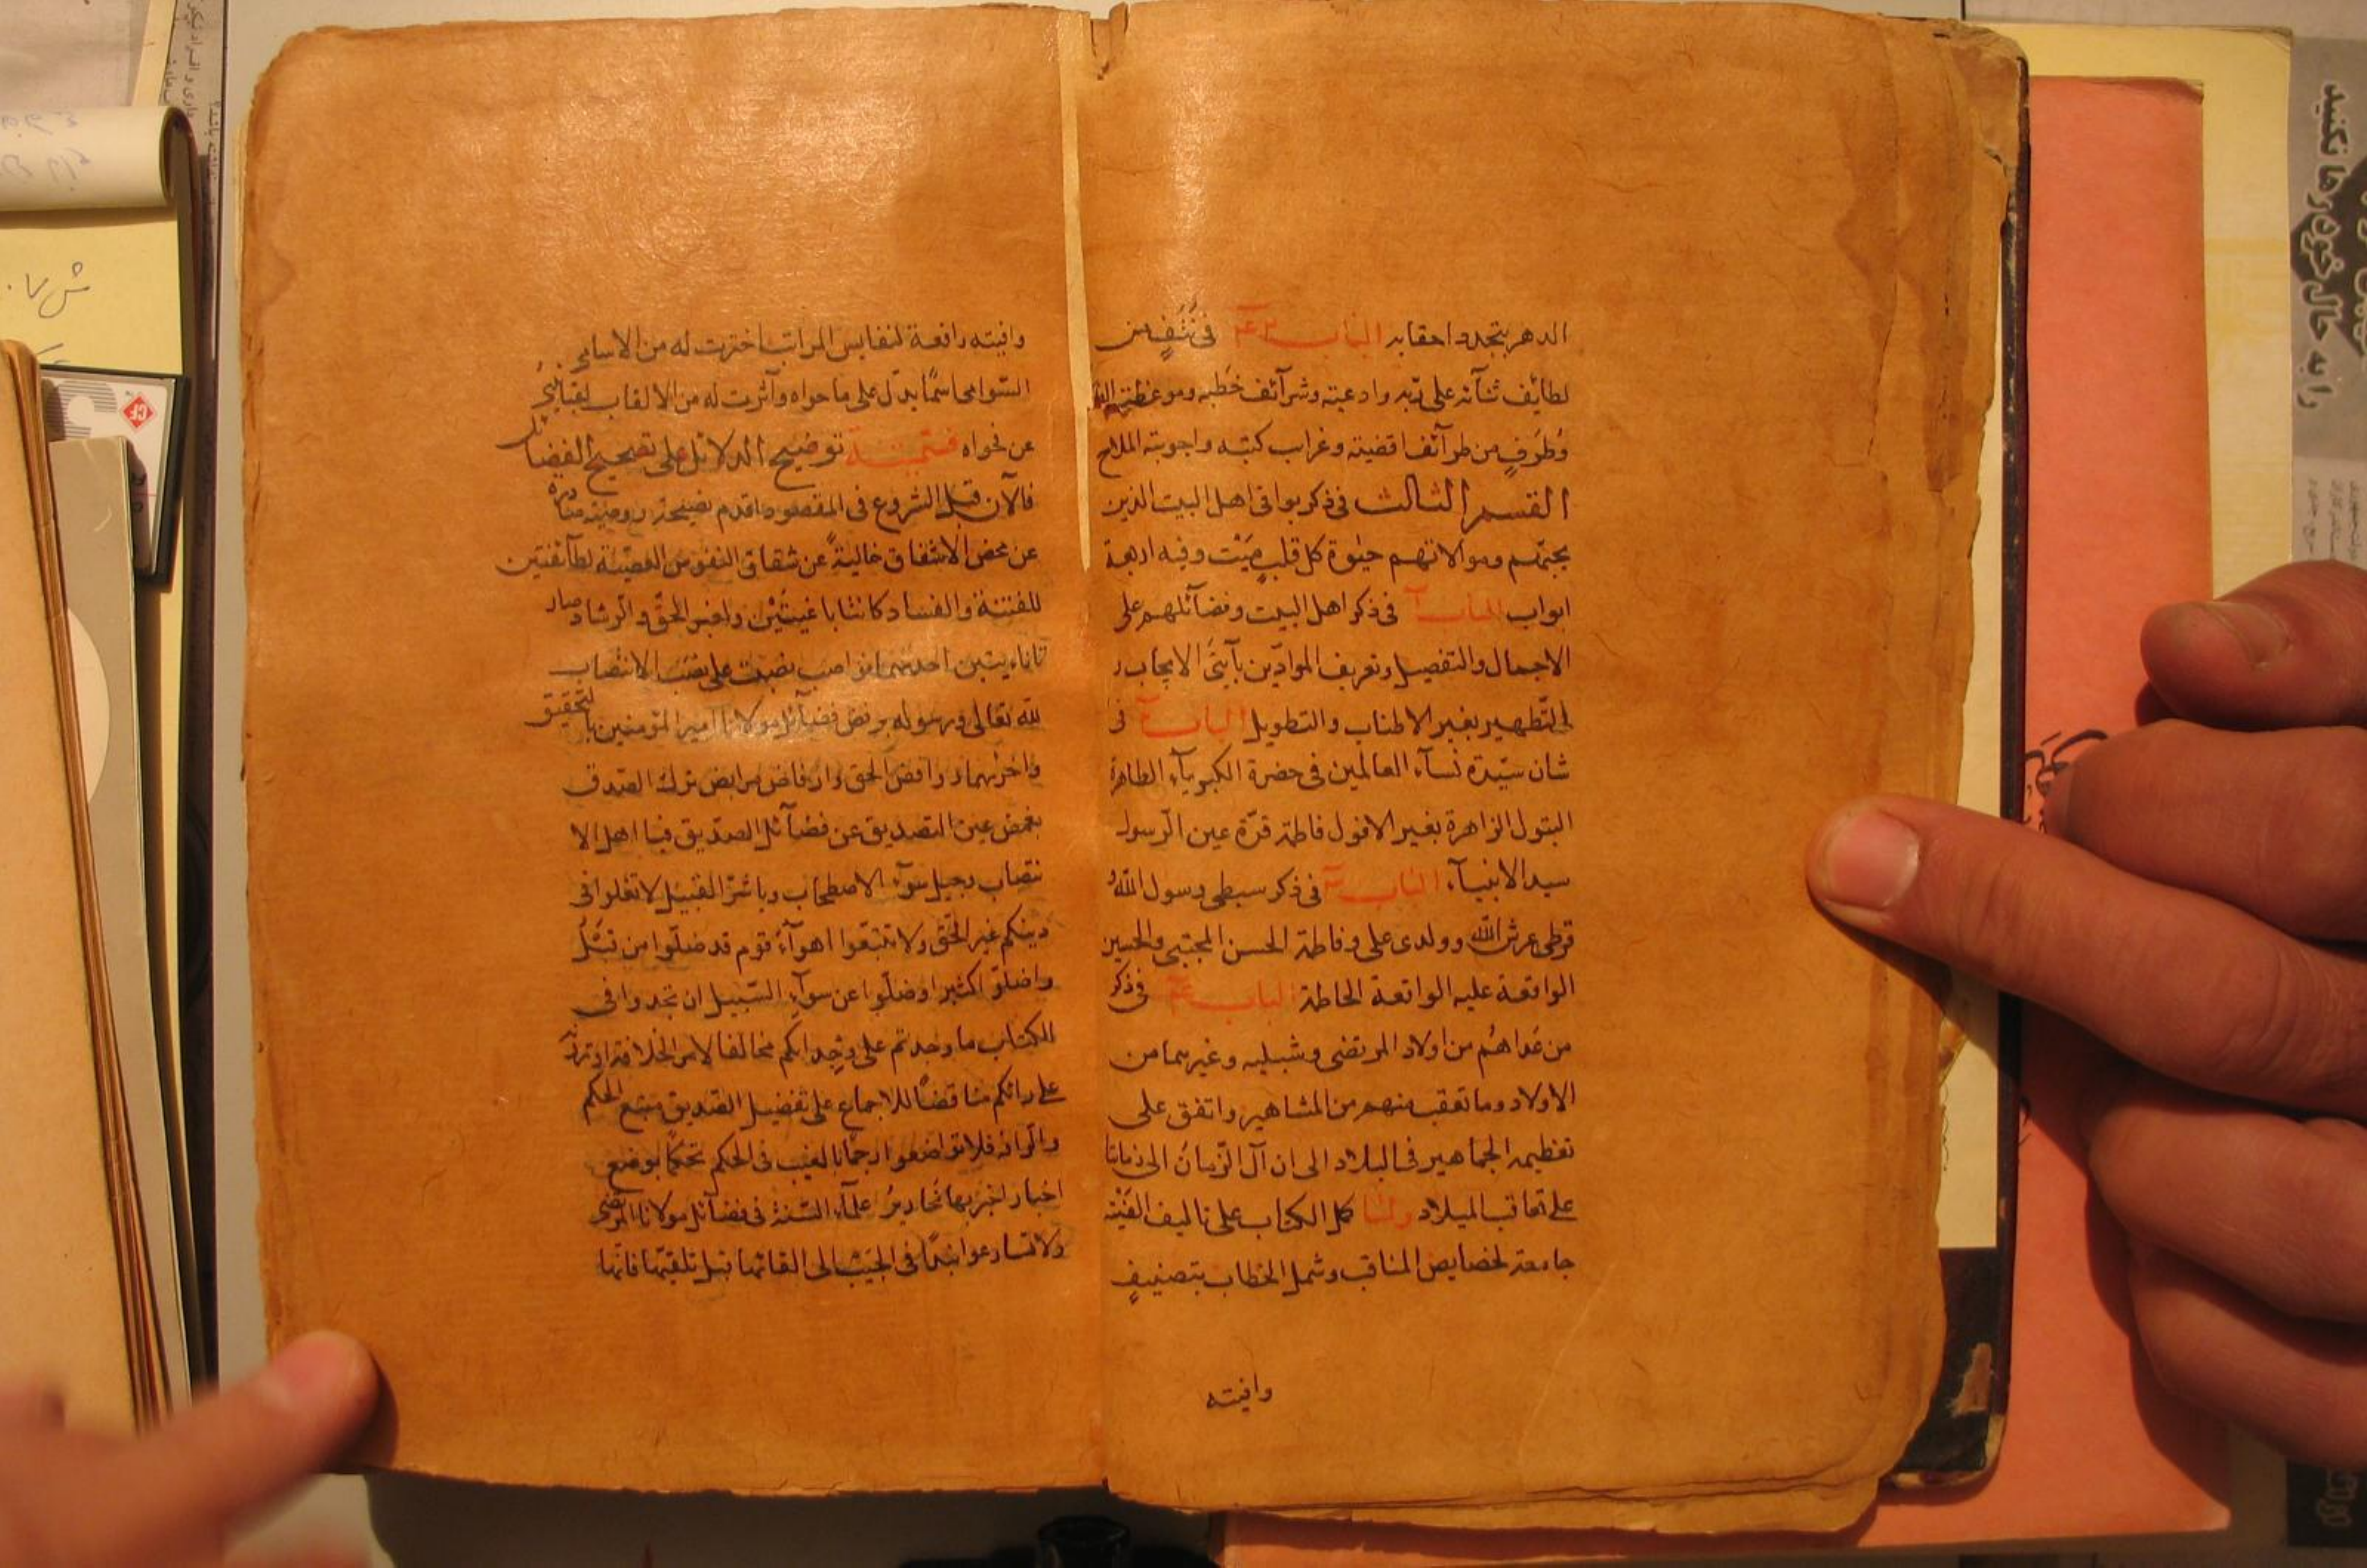 الدهر بتجدد احقابه الباب ٢٤ فى نُتَفٍ من
لطايف ثنآئه على ربه وادعيته وشرآئف خطبه وموعظته
وطُرَفٍ من طرآئف اقضيته وغرايب كتبه واجوبته الملاح
القسم الثالث فى ذكر بواقى اهل البيت الذين
بحبّهم وموالاتهم حيوة كل قلبٍ ميّت وفيه اربعة
ابواب الباب ١ فى ذكر اهل البيت وفضآئلهم على
الاجمال والتفصيل وتعريف الموادّين بآيتى الايجاب و
التّطهير بغير الاطناب والتطويل الباب ٢ فى
شان سيّدة نسآء العالمين فى حضرة الكبريآء الطاهرة
البتول الزاهرة بغير الافول فاطمة قرّة عين الرّسول
سيد الانبيآء الباب ٣ فى ذكر سبطى رسول اللّه و
قرطى عرش اللّه وولدى على وفاطمة الحسن المجتبى والحسين
الواقعة عليه الواقعة الحاطمة الباب ٤ فى ذكر
من عداهُم من اولاد المرتضى وشبليه وغيرهما من
الاولاد وما تعقب منهم من المشاهير واتفق على
تعظيمه الجماهير فى البلاد الى ان آل الزّمان الى زماننا
على تعاقب الميلاد ولمّا كمل الكتاب على تاليف الفَيْتُه
جامعة لخصايص المناقب وشمل الخطاب بتصنيفٍ
وافيته
وافيته رافعة لنفايس المراتب اخترت له من الاسامى
السّوامى اسمًا يدلّ على ما حواه وآثرت له من الالقاب لقبًا
عن فحواه فسمّيته توضيح الدلائل على تصحيح الفضائل
فالآن قبل الشروع فى المقصود اقدم نصيحة ووصيّة صادرة
عن محض الاشفاق خالية عن شقاق النفوس العصيّة لطآئفتين
للفتنة والفساد كانتا باغيتين ولعين الحقّ والرشاد صار
تا احديهما نواصب نصبت على الانتصاب
للّه تعالى ورسوله برفض فضآئل مولانا امير المؤمنين بالتحقيق
واخريهما روافض الحق وارفاض مرابض ترك الصّدق
بغمض عين التصديق عن فضآئل الصدّيق فيا اهل الا
نتصاب وجيل سوء الاصطحاب ويا شرّ القبيل لا تغلوا فى
دينكم غير الحقّ ولا تتبعوا اهوآء قوم قد ضلّوا من قبلُ
واضلّوا كثيرا وضلّوا عن سوآء السّبيل ان تجدوا فى
الكتاب ما وجدتم على وِجدانكم مخالفا لامر الخلافة او
على رائكم مناقضًا للاجماع على تفضيل الصّديق منبع الحكم
فلا تواضعوا رجمًا بالغيب فى الحكم تحكمًا بوضع
اخبار اخبر بها نحارير علمآء السّنة فى فضآئل مولانا المرتضى
ولا تسارعوا الى القائها قبل تلقيّها فانّها